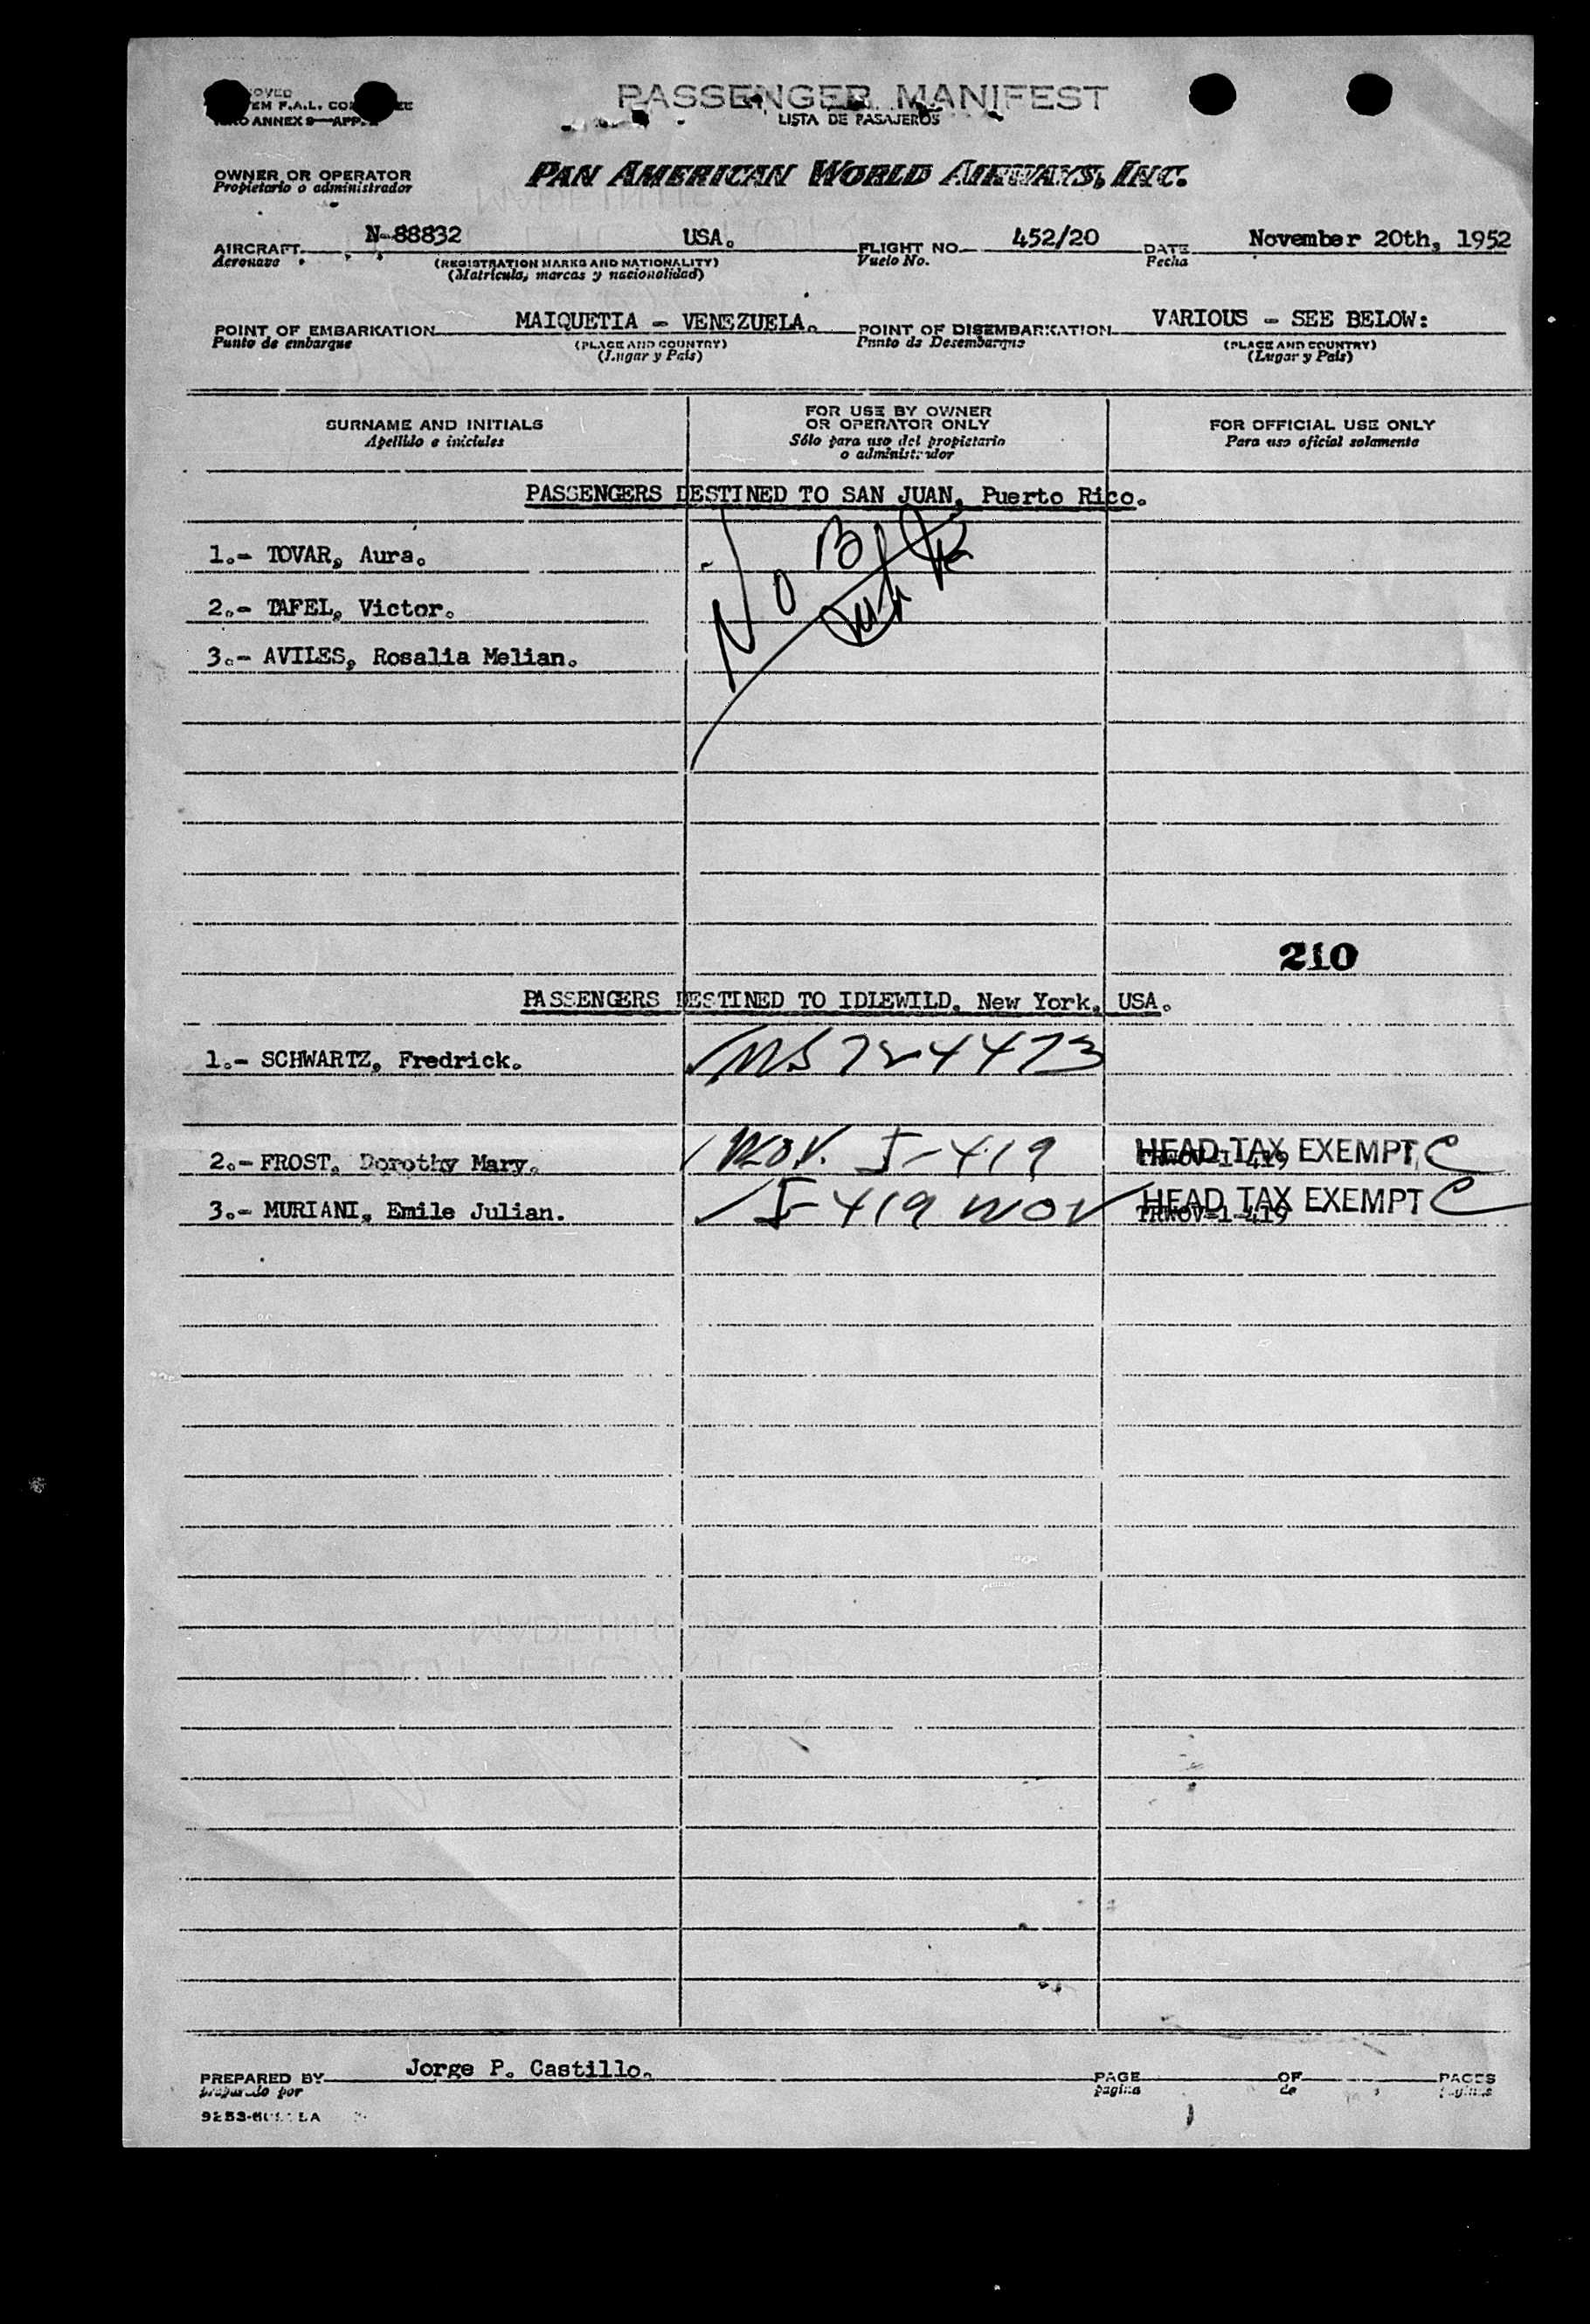 PASSENGER MANIFEST
LISTA DE PASAJEROS
ANNEX 9—APP. 2
OWNER OR OPERATOR
Propietario o administrador
PAN AMERICAN WORLD AIRWAYS, INC.
AIRCRAFT N-88832 USA. FLIGHT NO. 452/20 DATE November 20th, 1952
Aeronave (REGISTRATION MARKS AND NATIONALITY) Vuelo No. Fecha
(Matricula, marcas y nacionalidad)
POINT OF EMBARKATION MAIQUETIA - VENEZUELA. POINT OF DISEMBARKATION VARIOUS - SEE BELOW:
Punto de embarque (PLACE AND COUNTRY) Punto de Desembarque (PLACE AND COUNTRY)
(Lugar y País) (Lugar y País)
SURNAME AND INITIALS FOR USE BY OWNER OR OPERATOR ONLY FOR OFFICIAL USE ONLY
Apellido e iniciales Sólo para uso del propietario o administrador Para uso oficial solamente
PASSENGERS DESTINED TO SAN JUAN, Puerto Rico.
1.- TOVAR, Aura.
No B
2.- TAFEL, Victor.
3.- AVILES, Rosalia Melian.
210
PASSENGERS DESTINED TO IDLEWILD, New York, USA.
1.- SCHWARTZ, Fredrick. 724473
2.- FROST, Dorothy Mary. WOV. I-419 HEAD TAX EXEMPT C
TRWOV-1-419
3.- MURIANI, Emile Julian. I-419 WOV HEAD TAX EXEMPT C
TRWOV-1-419
PREPARED BY Jorge P. Castillo. PAGE OF PAGES
preparado por pagina de paginas